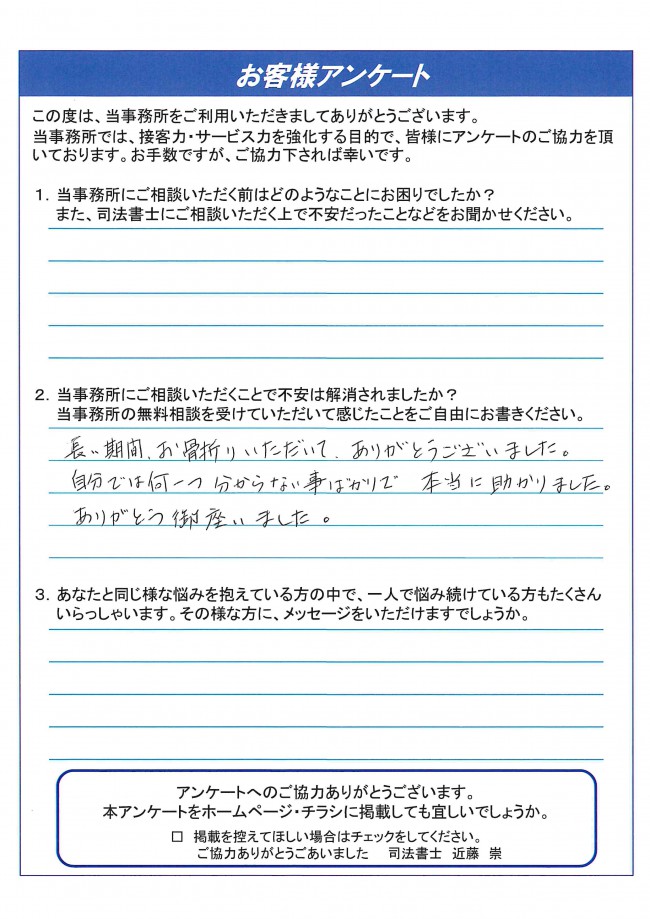 お客様アンケート
この度は、当事務所をご利用いただきましてありがとうございます。
当事務所では、接客力・サービス力を強化する目的で、皆様にアンケートのご協力を頂
いております。お手数ですが、ご協力下されば幸いです。
1．当事務所にご相談いただく前はどのようなことにお困りでしたか？
また、司法書士にご相談いただく上で不安だったことなどをお聞かせください。
2．当事務所にご相談いただくことで不安は解消されましたか？
当事務所の無料相談を受けていただいて感じたことをご自由にお書きください。
長い期間、お骨折りいただいて、ありがとうございました。
自分では何一つ分からない事ばかりで 本当に助かりました。
ありがとう御座いました。
3．あなたと同じ様な悩みを抱えている方の中で、一人で悩み続けている方もたくさん
いらっしゃいます。その様な方に、メッセージをいただけますでしょうか。
アンケートへのご協力ありがとうございます。
本アンケートをホームページ・チラシに掲載しても宜しいでしょうか。
□ 掲載を控えてほしい場合はチェックをしてください。
ご協力ありがとうごあいました 司法書士 近藤 崇